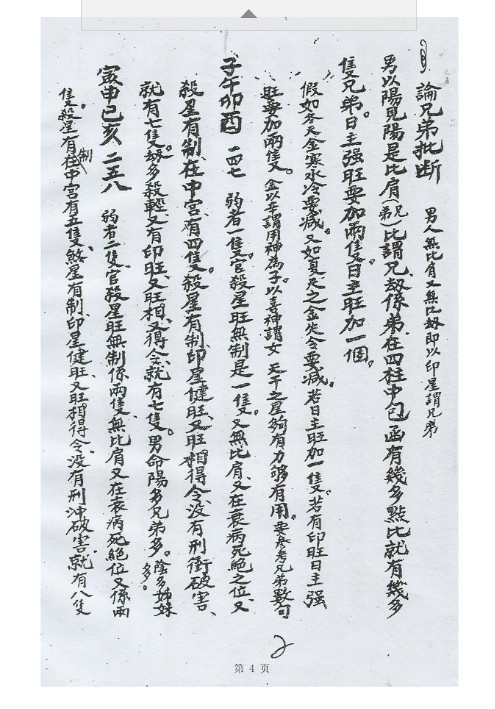 論兄弟批断
男人無比肩又無比劫即以印星謂兄弟
男以陽見陽是比肩(兄弟)比謂兄劫係弟在四柱中包函有幾多點比就有幾多
隻兄弟。日主强旺要加兩隻。又日主旺加一個。
假如冬天金寒水冷要減。又如夏天之金炎令要減。若日主旺加一隻。若有印旺日主强
旺每加兩隻。金以辛謂用神為子以喜神謂女 天干之星夠有力够有用。要參考兄弟数句
子午卯酉 二四七 弱者一隻。官殺星旺無制是一隻。又無比肩又在衰病死絕之位、又
殺星有制在中宮有四隻。殺星有制、印星健旺又旺相得令没有刑衝破害、
就有七隻。劫多殺輕又有印旺又旺相又得令就有七隻。男命陽多兄弟多。陰多姊妹多。
寅申巳亥 二五八 弱者二隻、官殺星旺無制係兩隻、無比肩又在衰病死絕位又係兩
隻。殺星有制在中宮有五隻、煞星有制、印星健旺又旺相得令没有刑冲破害、就有八隻
2
第 4 页